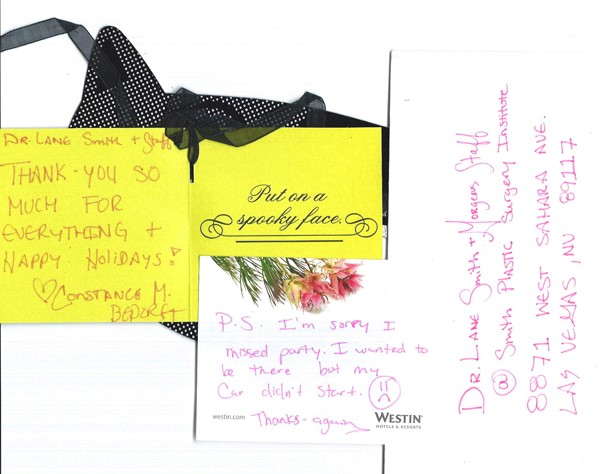 Dr. Lane Smith + Staff
Thank-you so
much for
everything +
Happy Holidays!
Constance M.
Put on a
spooky face.
P.S. I'm sorry I
missed party. I wanted to
be there but my
car didn't start.
Thanks-again
westin.com
WESTIN®
HOTELS & RESORTS
Dr. Lane Smith + Staff
@ Smith Plastic Surgery Institute
8871 West Sahara Ave.
Las Vegas, NV 89117